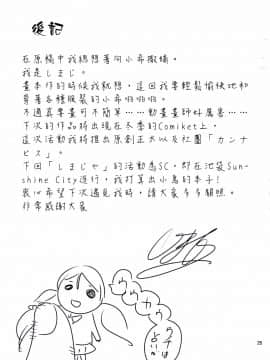 後記
在原稿中我總想著向小希撒嬌。
我是しまじ。
畫本作的時候我就想，這回我要輕鬆愉快地和
穿著各種服裝的小希啪啪啪。
不過真要畫可不簡單……動畫畫師好厲害……
下次的作品將出現在冬季的Comiket上，
這次活動我將推出原創正太以及社團「カンナ
ビス」。
下回「しまじや」的活動為SC，即在池袋Sun-
shine City進行，我打算出小鳥的本子！
衷心希望下次遇見我時，請大家多多關照。
非常感謝大家
ウウカウ